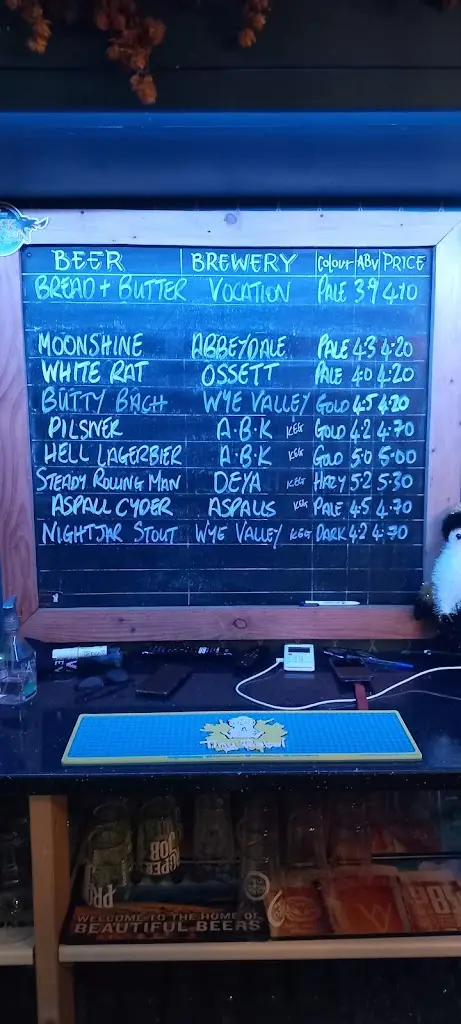 BEER BREWERY COLOUR ABV PRICE
BREAD + BUTTER VOCATION PALE 3.9 4.10
MOONSHINE ABBEYDALE PALE 4.3 4.20
WHITE RAT OSSETT PALE 4.0 4.20
BUTTY BACH WYE VALLEY GOLD 4.5 4.20
PILSNER A.B.K KEG GOLD 4.2 4.70
HELL LAGERBIER A.B.K KEG GOLD 5.0 5.00
STEADY ROLLING MAN DEYA KEG HAZY 5.2 5.30
ASPALL CYDER ASPALLS KEG PALE 4.5 4.70
NIGHTJAR STOUT WYE VALLEY KEG DARK 4.2 4.70
WELCOME TO THE HOME OF
BEAUTIFUL BEERS